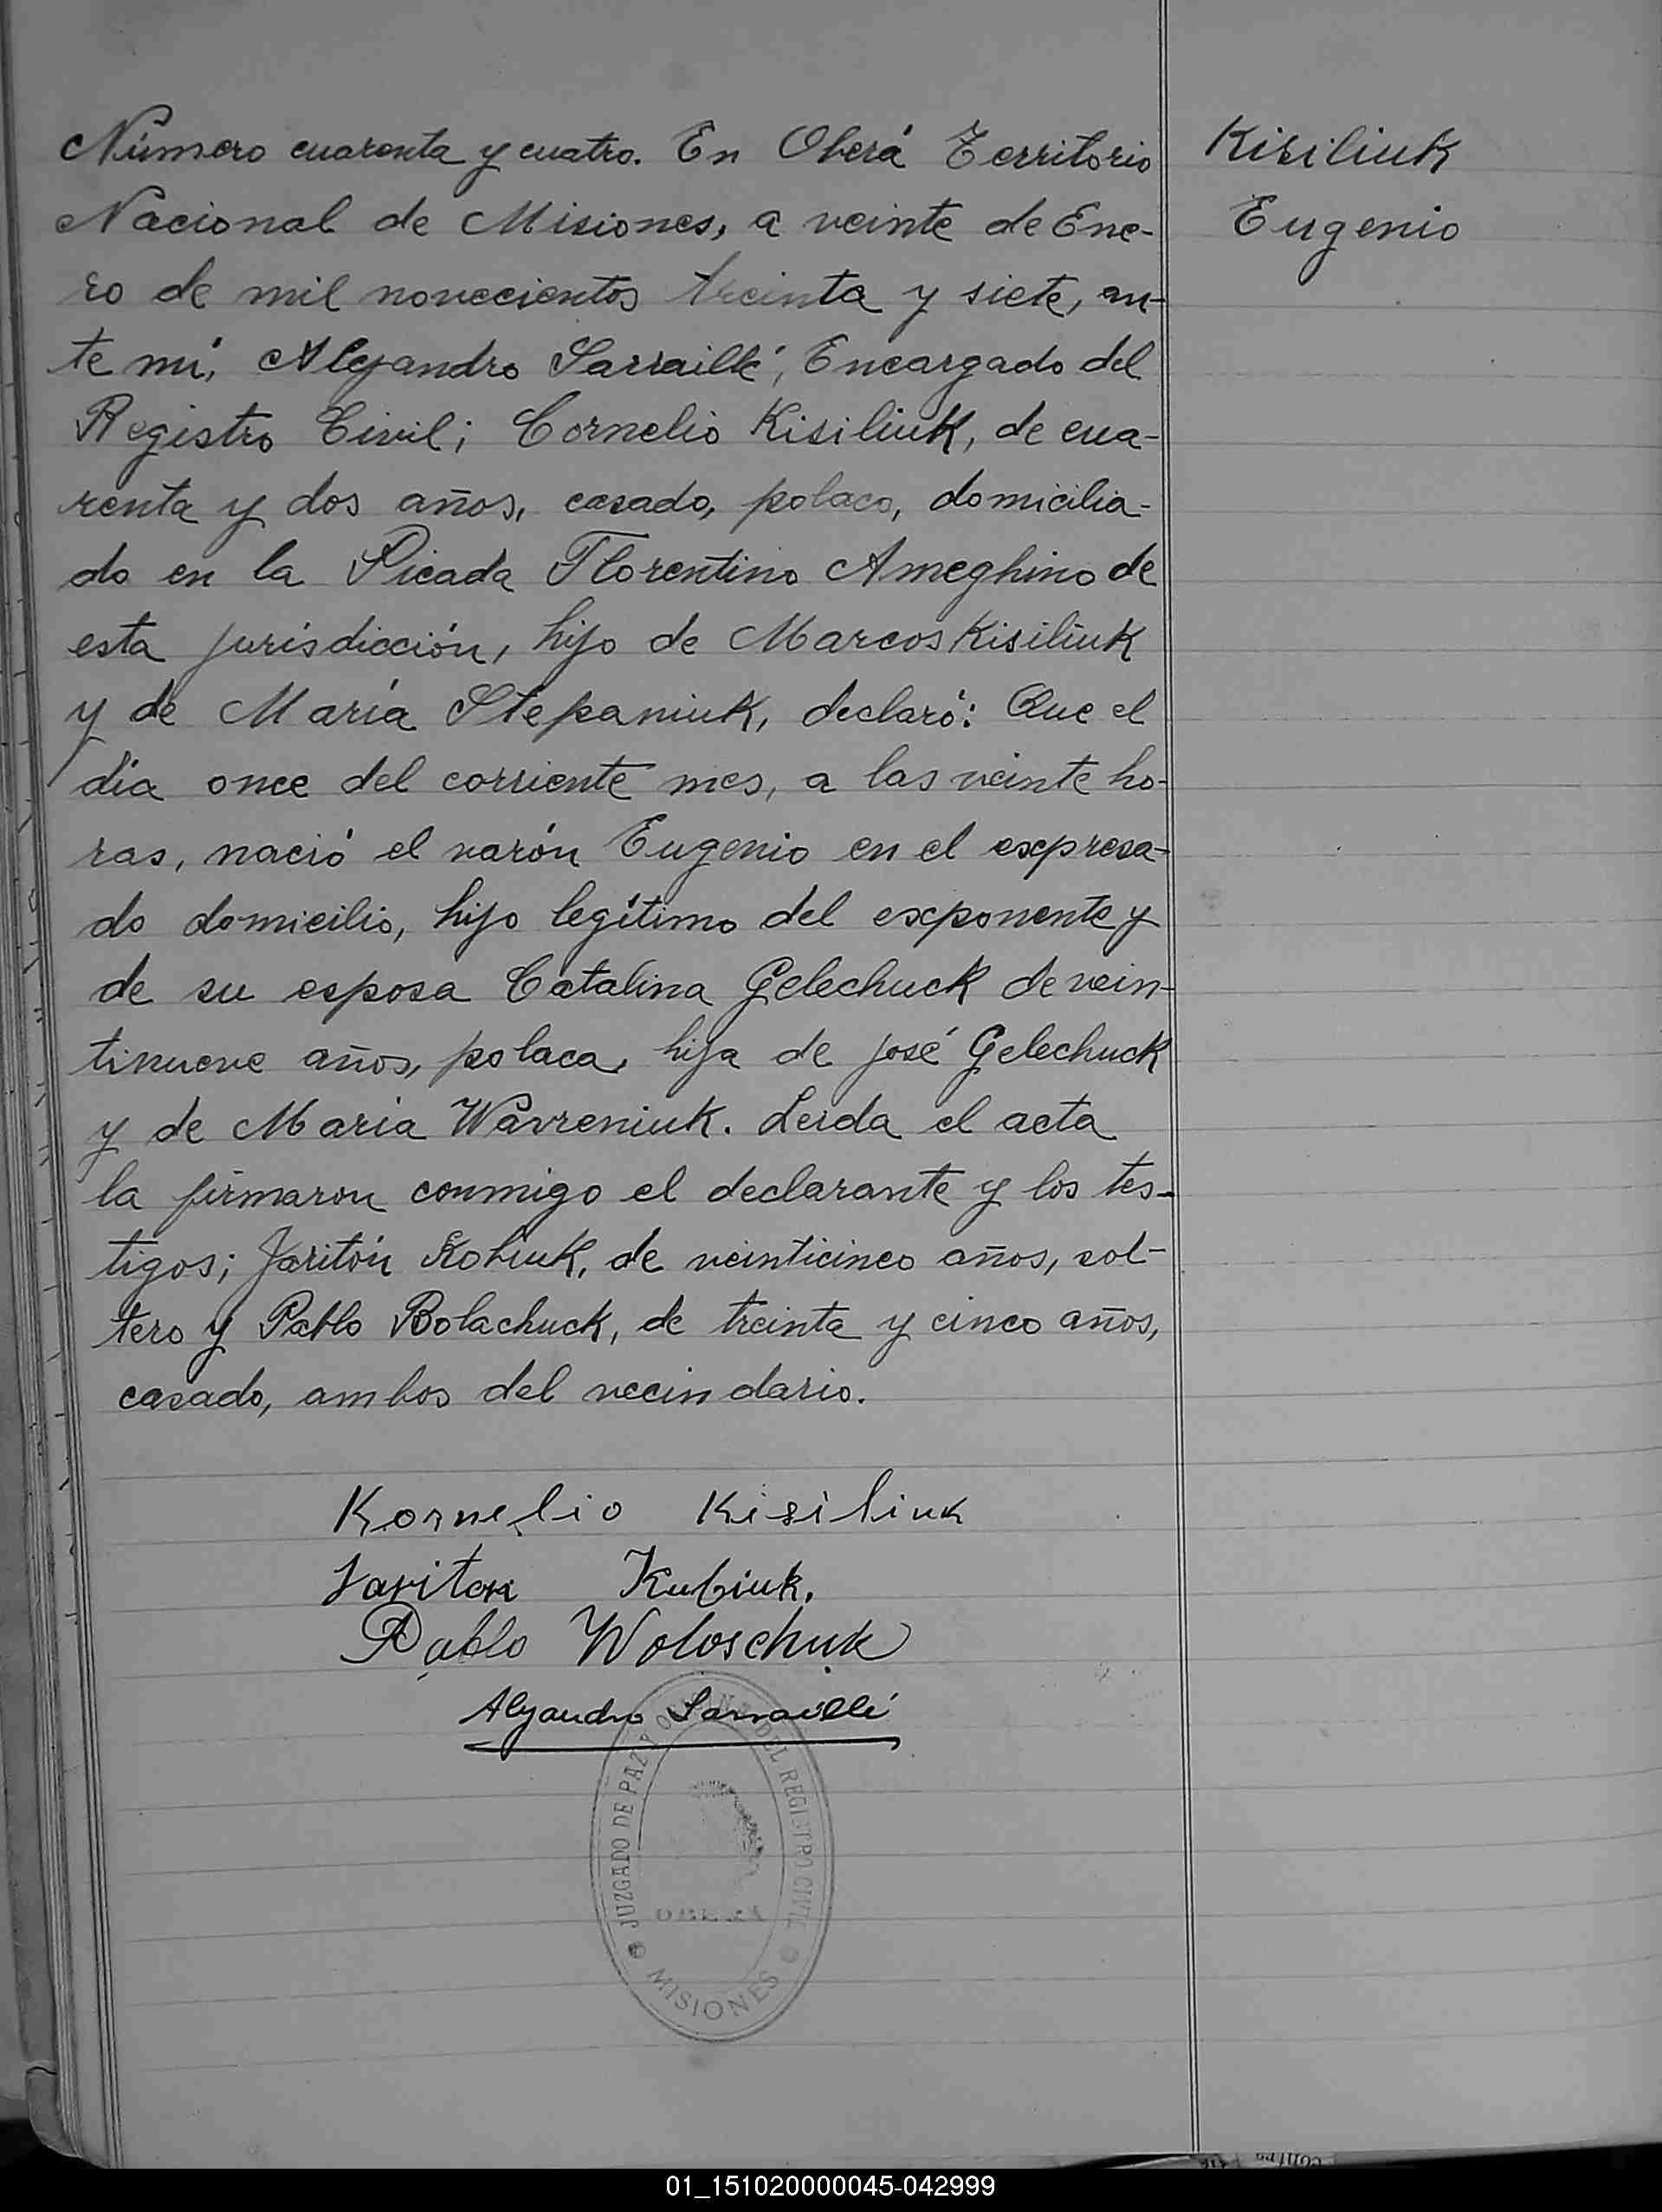 Número cuarenta y cuatro. En Oberá Territorio
Nacional de Misiones, a veinte de Ene-
ro de mil novecientos treinta y siete, an-
te mí, Alejandro Sarraillé, Encargado del
Registro Civil; Cornelio Kisiliuk, de cua-
renta y dos años, casado, polaco, domicilia-
do en la Picada Florentino Ameghino de
esta jurisdicción, hijo de Marcos Kisiliuk
y de María Stepaniuk, declaró: Que el
día once del corriente mes, a las veinte ho-
ras, nació el varón Eugenio en el expresa-
do domicilio, hijo legítimo del exponente y
de su esposa Catalina Gelechuck de vein-
tinueve años, polaca, hija de José Gelechuck
y de María Wavreniuk. Leída el acta
la firmaron conmigo el declarante y los tes-
tigos; Jaritón Kobiuk, de veinticinco años, sol-
tero y Pablo Bolachuck, de treinta y cinco años,
casado, ambos del vecindario.
Kisiliuk
Eugenio
Kornelio Kisiliuk
Jariton Kubiuk.
Pablo Woloschuk
Alejandro Sarraillé
JUZGADO DE PAZ Y OFICINA DEL REGISTRO CIVIL
OBERÁ
MISIONES
01_151020000045-042999